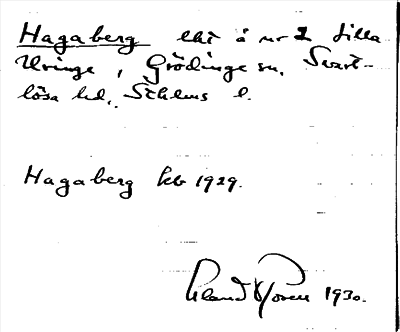 Hagaberg lht å nr 2 Lilla
Uringe, Grödinge sn, Svart-
lösa hd, Sthlms l.
Hagaberg kb 1929.
1930.